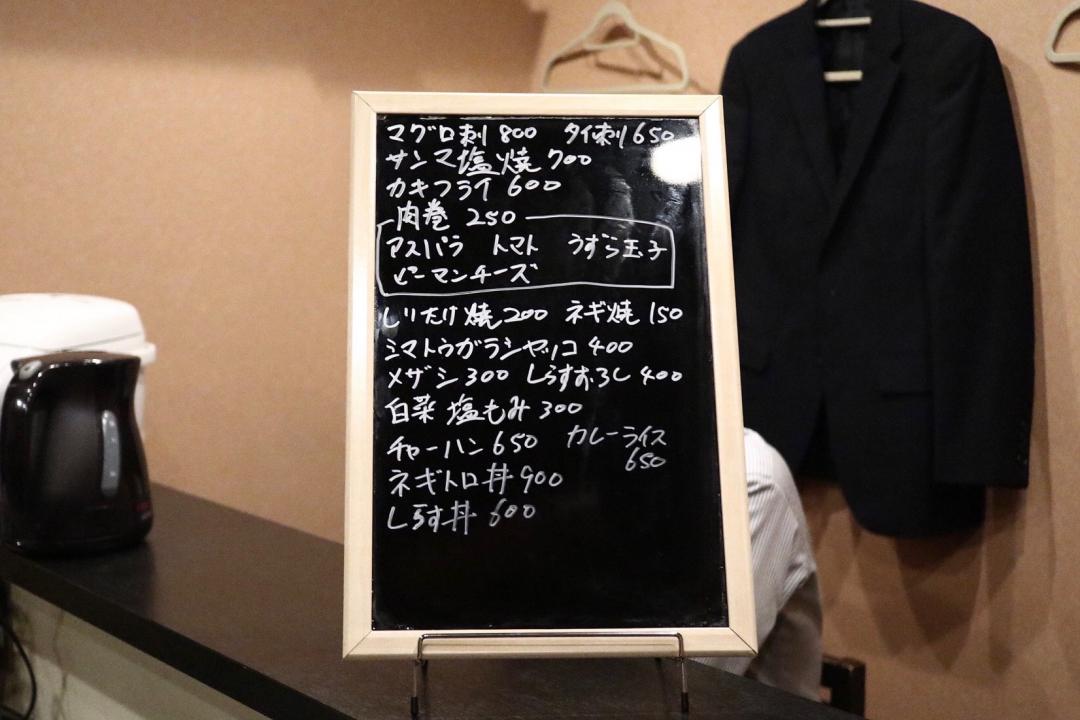 マグロ刺 800 タイ刺 650
サンマ塩焼 700
カキフライ 600
肉巻 250
アスパラ トマト うずら玉子
ピーマンチーズ
しいたけ焼 200 ネギ焼 150
シマトウガラシヤッコ 400
メザシ 300 しらすおろし 400
白菜 塩もみ 300
チャーハン 650 カレーライス
650
ネギトロ丼 900
しらす丼 600